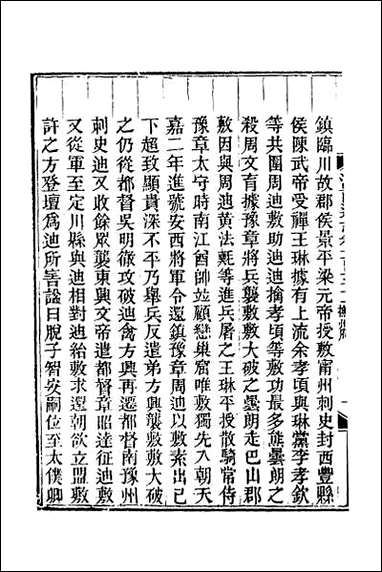 鎮臨川故郡侯景平梁元帝授敷甯州刺史封西豐縣
侯陳武帝受禪王琳據有上流余孝頃與琳黨李孝欽
等共圍周迪敷助迪迪擒孝頃等敷功最多熊曇朗之
殺周文育據豫章將兵襲敷敷大破之曇朗走巴山郡
敷因與周迪黃法𣰰等進兵屠之王琳平授散騎常侍
豫章太守時南江酋帥竝顧戀巢窟唯敷獨先入朝天
嘉二年進號安西將軍令還鎮豫章周迪以敷素出己
下超致顯貴深不平乃舉兵反遣弟方興襲敷敷大破
之仍從都督吳明徹攻破迪禽方興再遷都督南豫州
刺史迪又收餘眾襲東興文帝遣都督章昭達征迪敷
又從軍至定川縣與迪相對迪紿敷求還朝欲立盟敷
許之方登壇為迪所害諡曰脫子智安嗣位至太僕卿